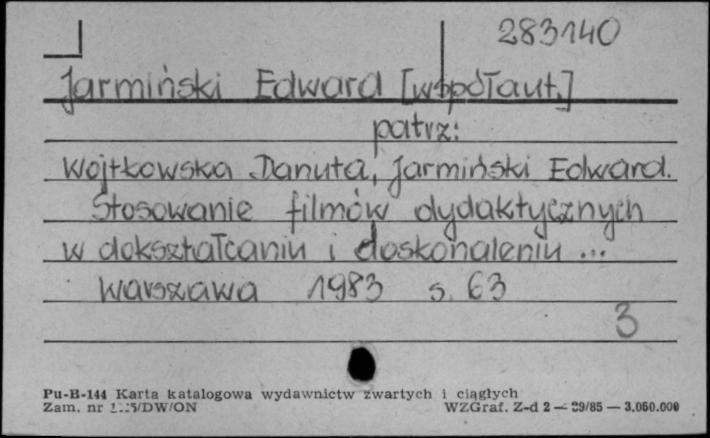 283140
Jarmiński Edward [współaut.]
patrz:
Wojtkowska Danuta, Jarmiński Edward.
Stosowanie filmów dydaktycznych
w dokształcaniu i doskonaleniu ...
Warszawa 1983 s. 63
3
Pu-B-144 Karta katalogowa wydawnictw zwartych i ciągłych
Zam. nr /DW/ON WZGraf. Z-d 2 — 29/85 — 3.050.000